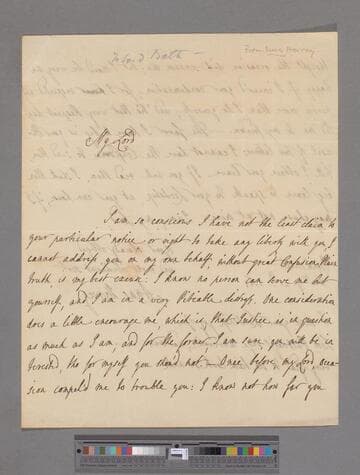 To Lord Bath —
From Miss Harvey
My Lord
I am so conscious I have not the least claim to
your particular notice or right to take any liberty with you I
cannot address you on my own behalf, without great Confusion. Plain
truth is my best excuse: I know no person can serve me but
yourself, and I am in a very Pitiable distress. One consideration
does a little encourage me, which is, that Justice is in question
as much as I am, and for the former I am sure you will be in
terested, tho for myself you should not — Once before my Lord occa
sion compel'd me to trouble you: I know not how far you